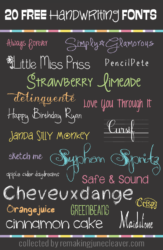 20 FREE HANDWRITING FONTS
Always forever
Simply Glamorous
Little Miss Priss
PencilPete
STRAWBERRY LIMEADE
delinquente
Love You Through It
Happy Birthday Ryan
JANDA SILLY MONKEY
sketch me
Syphon Spritz
apple cider daydreams
Safe & Sound
Cheveuxdange
Orangejuice
GREENBEANS
Crispy
cinnamon cake
collected by remakingjunecleaver.com